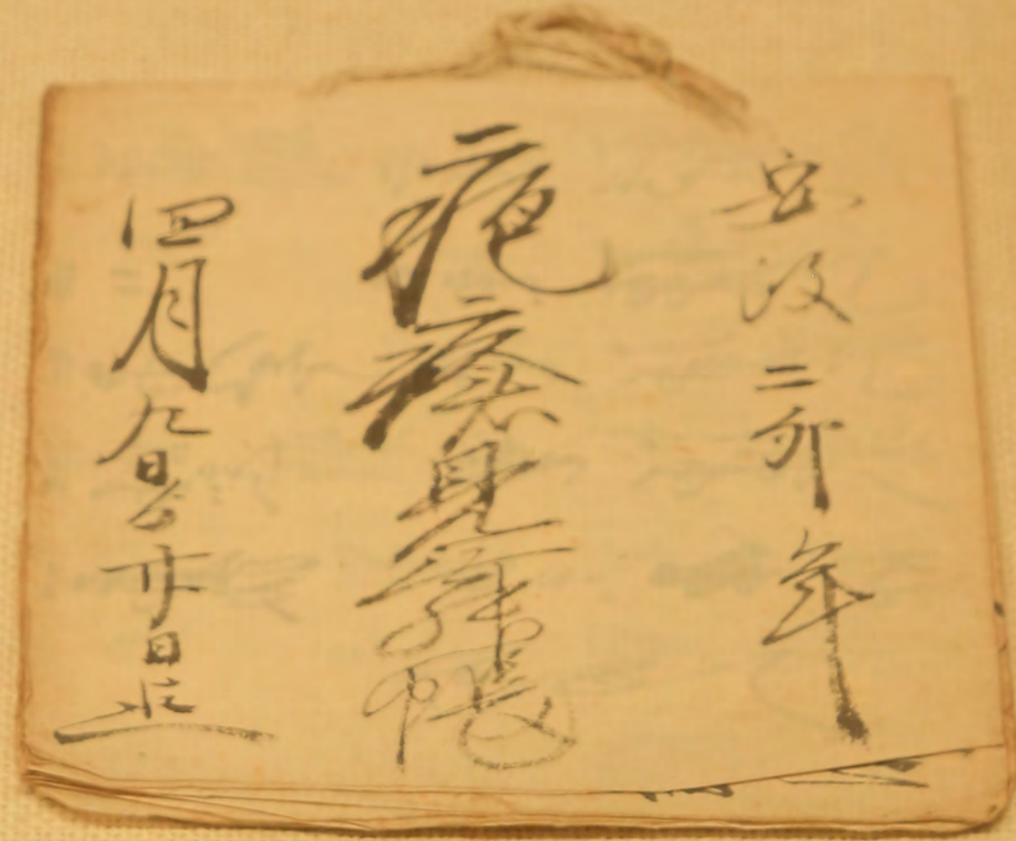 安政二卯年
疱瘡見舞帳
四月九日ゟ廿日迄